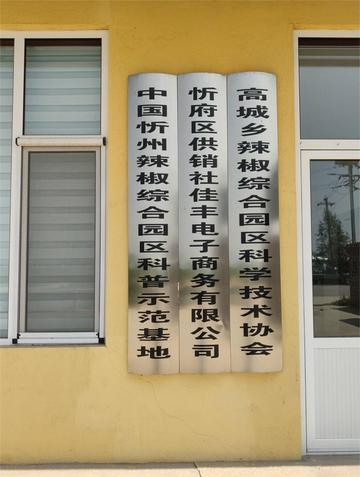 中国忻州辣椒综合园区科普示范基地
忻府区供销社佳丰电子商务有限公司
高城乡辣椒综合园区科学技术协会